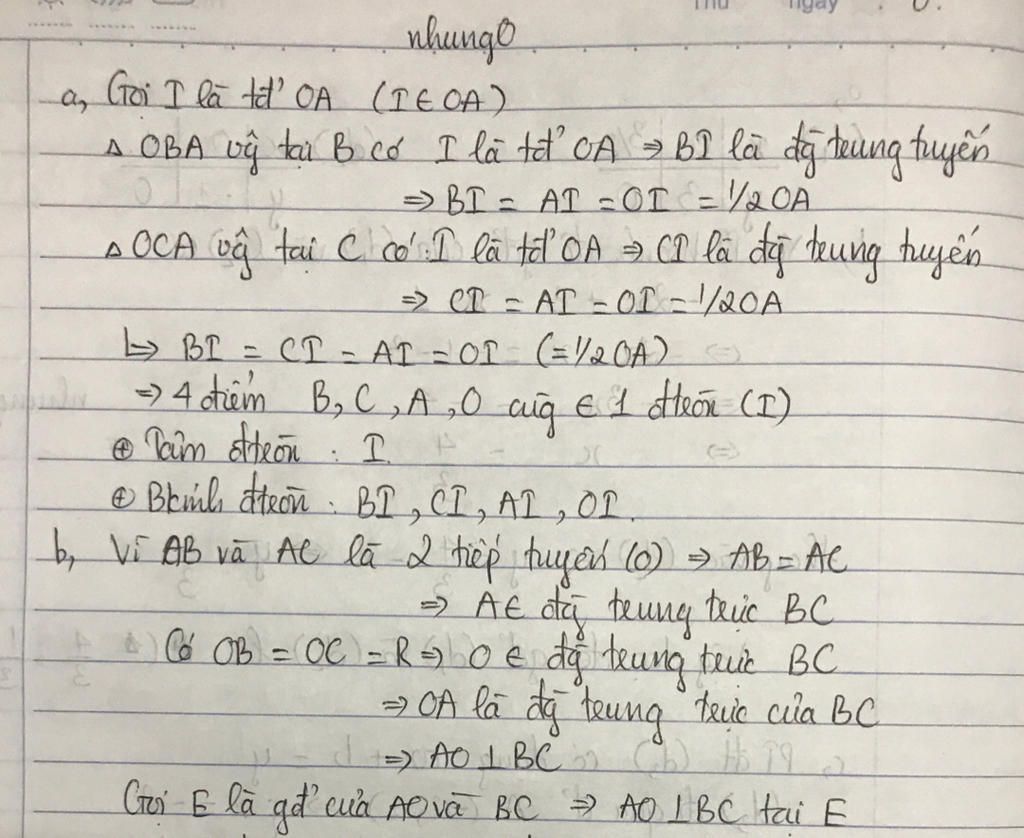 Thứ ngày
nhung0
a, Gọi I là tđ' OA (I ∈ OA)
Δ OBA vg̃ tại B có I là tđ' OA ⇒ BI là đg̃ trung tuyến
⇒ BI = AI = OI = 1/2 OA
Δ OCA vg̃ tại C có I là tđ' OA ⇒ CI là đg̃ trung tuyến
⇒ CI = AI = OI = 1/2 OA
↳ BI = CI = AI = OI (= 1/2 OA)
⇒ 4 điểm B, C, A, O cùg ∈ 1 đtròn (I)
⊕ Tâm đtròn : I.
⊕ Bkính đtròn : BI, CI, AI, OI.
b, Vì AB và AC là 2 tiếp tuyến (O) ⇒ AB = AC
⇒ A ∈ đg̃ trung trực BC
Có OB = OC = R ⇒ O ∈ đg̃ trung trực BC
⇒ OA là đg̃ trung trực của BC
⇒ AO ⊥ BC
Gọi E là gđ' của AO và BC ⇒ AO ⊥ BC tại E